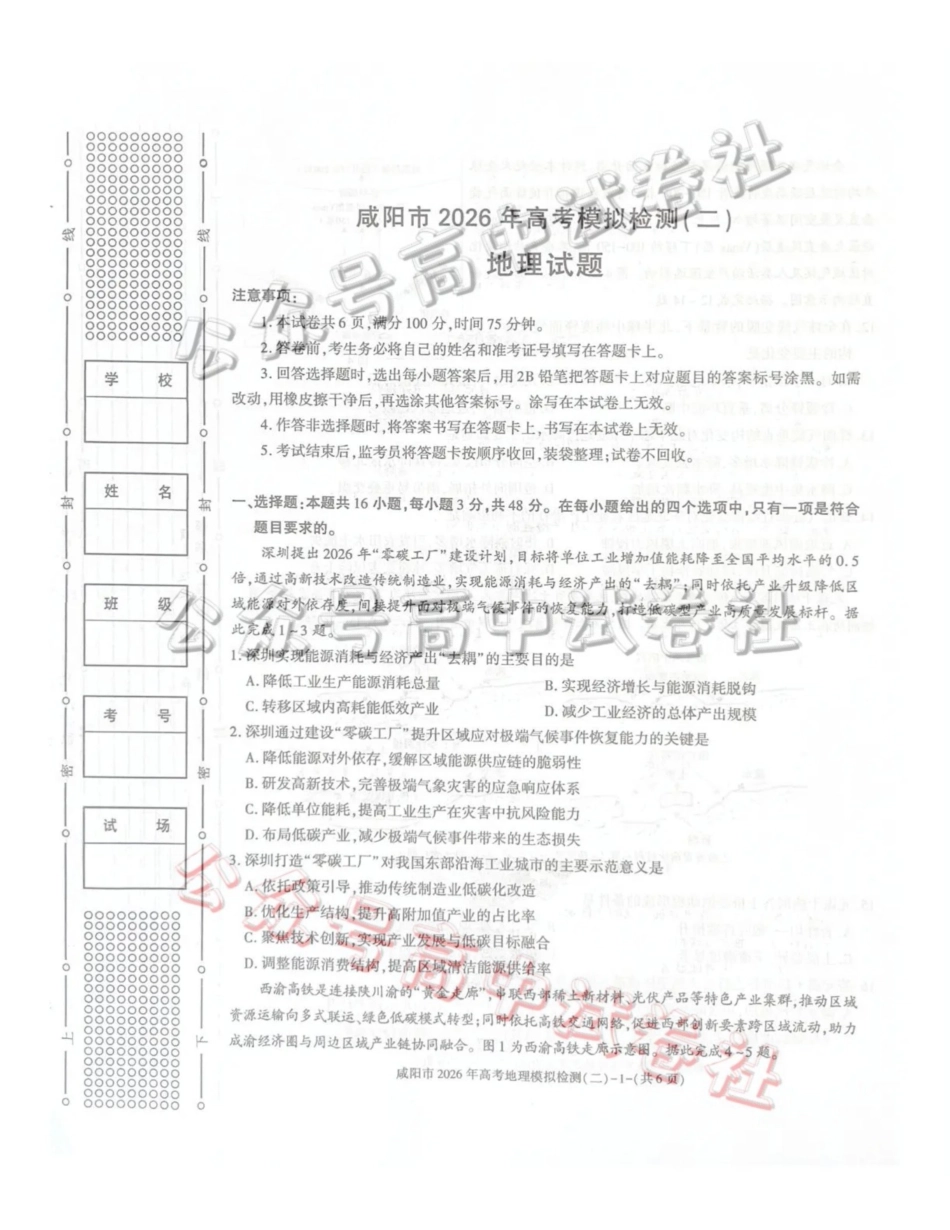 咸阳市2026年高考模拟检测(二)
地理试题
注意事项:
1.本试卷共6页,满分100分,时间75分钟。
2.答卷前,考生务必将自己的姓名和准考证号填写在答题卡上。
3.回答选择题时,选出每小题答案后,用2B铅笔把答题卡上对应题目的答案标号涂黑。如需
改动,用橡皮擦干净后,再选涂其他答案标号。涂写在本试卷上无效。
4.作答非选择题时,将答案书写在答题卡上,书写在本试卷上无效。
5.考试结束后,监考员将答题卡按顺序收回,装袋整理;试卷不回收。
一、选择题:本题共16小题,每小题3分,共48分。在每小题给出的四个选项中,只有一项是符合
题目要求的。
深圳提出2026年“零碳工厂”建设计划,目标将单位工业增加值能耗降至全国平均水平的0.5
倍,通过高新技术改造传统制造业,实现能源消耗与经济产出的“去耦”;同时依托产业升级降低区
域能源对外依存度,间接提升面对极端气候事件的恢复能力,打造低碳型产业高质量发展标杆。据
此完成1~3题。
1.深圳实现能源消耗与经济产出“去耦”的主要目的是
A.降低工业生产能源消耗总量 B.实现经济增长与能源消耗脱钩
C.转移区域内高耗能低效产业 D.减少工业经济的总体产出规模
2.深圳通过建设“零碳工厂”提升区域应对极端气候事件恢复能力的关键是
A.降低能源对外依存,缓解区域能源供应链的脆弱性
B.研发高新技术,完善极端气象灾害的应急响应体系
C.降低单位能耗,提高工业生产在灾害中抗风险能力
D.布局低碳产业,减少极端气候事件带来的生态损失
3.深圳打造“零碳工厂”对我国东部沿海工业城市的主要示范意义是
A.依托政策引导,推动传统制造业低碳化改造
B.优化生产结构,提升高附加值产业的占比率
C.聚焦技术创新,实现产业发展与低碳目标融合
D.调整能源消费结构,提高区域清洁能源供给率
西渝高铁是连接陕川渝的“黄金走廊”,串联西部稀土新材料、光伏产品等特色产业集群,推动区域
资源运输向多式联运、绿色低碳模式转型;同时依托高铁交通网络,促进西部创新要素跨区域流动,助力
成渝经济圈与周边区域产业链协同融合。图1为西渝高铁走廊示意图。据此完成4~5题。
咸阳市2026年高考地理模拟检测(二)-1-(共6页)
学 校
姓 名
班 级
考 号
试 场
线
封
密
上
线
封
密
下
公众号高中试卷社
公众号高中试卷社
公众号高中试卷社